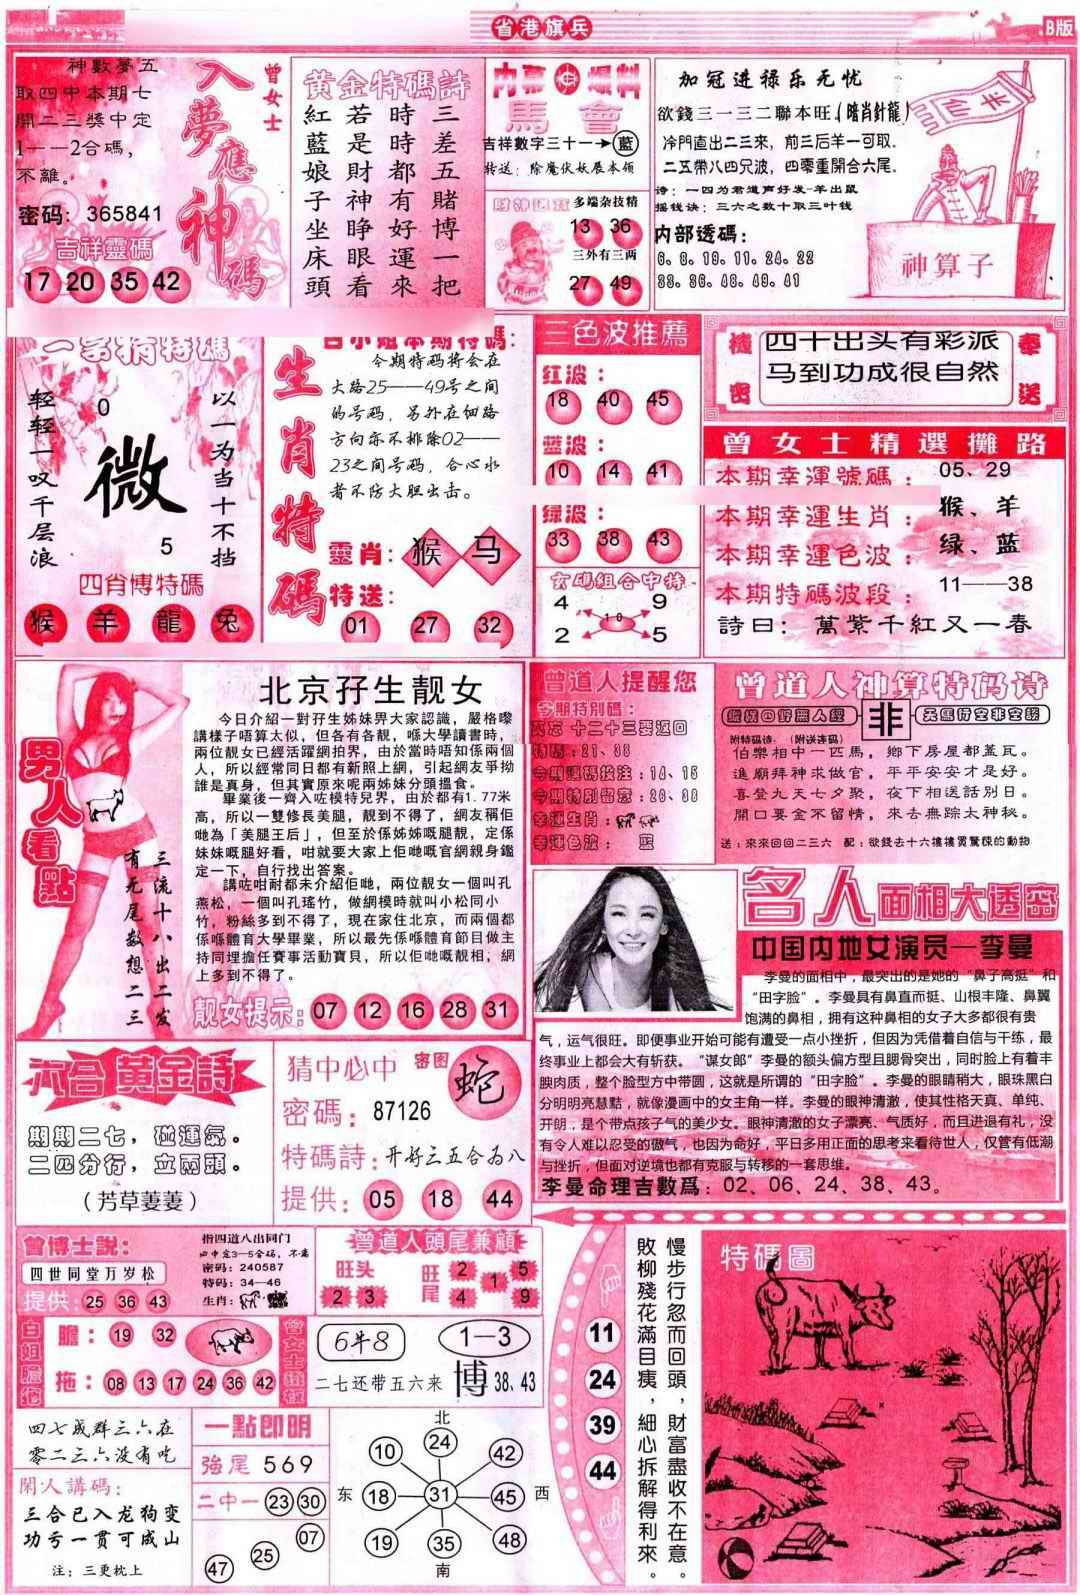 省港旗兵
B版
神數夢五
取四中本期七
開二三獎中定
1——2合碼，
不離。
密码：365841
吉祥靈碼
17 20 35 42
曾女士
入夢應神碼
黃金特碼詩
三差五賭博一把
時時都有好運來
若是財神睁眼看
紅藍娘子坐床頭
内幕爆料
馬會
吉祥數字三十一→藍
转送：除魔伏妖展本领
多端杂技精
13 36
三外有三两
27 49
加冠进禄乐无忧
欲錢三一三二聯本旺（暗肖針龍）
冷門直出二三來，前三后羊一可取．
二五带八四兄波，四零重開合六尾．
诗：一四为君道声好发-羊出鼠
摇钱诀：三六之数十取三叶钱
内部透碼：
神算子
以一为当十不挡
0
微
5
轻轻一叹千层浪
四肖博特碼
猴 羊 龍 兔
生肖特碼
今期特码将会在
大路25——49号之间
的号码，另外在细路
方向亦不排除02——
23之间号码，合心水
者不防大胆出击。
靈肖：猴 马
特送：
01 27 32
三色波推薦
红波：
18 40 45
蓝波：
10 14 41
绿波：
33 38 43
玄碼組合中特
4 9
10
2 5
機密
奉送
四十出头有彩派
马到功成很自然
曾女士精選攤路
本期幸運號碼：05、29
本期幸運生肖：猴、羊
本期幸運色波：绿、蓝
本期特碼波段：11——38
詩曰：萬紫千紅又一春
男人看點
三流十八出二发
有无尾数想二三
北京孖生靓女
今日介紹一對孖生姊妹畀大家認識，嚴格嚟
講樣子唔算太似，但各有各靚，喺大學讀書時，
兩位靚女已經活躍網拍界，由於當時唔知係兩個
人，所以經常同日都有新照上網，引起網友爭拗
誰是真身，但其實原來呢兩姊妹分頭搵食。
畢業後一齊入咗模特兒界，由於都有1.77米
高，所以一雙修長美腿，靚到不得了，網友稱佢
哋為「美腿王后」，但至於係姊姊嘅腿靚，定係
妹妹嘅腿好看，咁就要大家上佢哋嘅官網親身鑑
定一下，自行找出答案。
講咗咁耐都未介紹佢哋，兩位靚女一個叫孔
燕松，一個叫孔瑤竹，做網模時就叫小松同小
竹，粉絲多到不得了，現在家住北京，而兩個都
係喺體育大學畢業，所以最先係喺體育節目做主
持同埋擔任賽事活動寶貝，所以佢哋嘅靚相，網
上多到不得了。
靓女提示：07 12 16 28 31
曾道人提醒您
今期特別碼：
幸運生肖：
幸運色波：藍
曾道人神算特码诗
非
附特码诗：（附送连码）
伯樂相中一匹馬，鄉下房屋都蓋瓦。
進廟拜神求做官，平平安安才是好。
喜登九天七夕聚，夜下相送話別日。
開口要金不留情，來去無踪太神秘。
送：來來回回二三六 配：欲錢去十六樓樓買驚悚的動物
名人面相大透密
中国内地女演员—李曼
李曼的面相中，最突出的是她的“鼻子高挺”和
“田字脸”。李曼具有鼻直而挺、山根丰隆、鼻翼
饱满的鼻相，拥有这种鼻相的女子大多都很有贵
气，运气很旺。即便事业开始可能有遭受一点小挫折，但因为凭借着自信与干练，最
终事业上都会大有斩获。“谋女郎”李曼的额头偏方型且腮骨突出，同时脸上有着丰
腴肉质，整个脸型方中带圆，这就是所谓的“田字脸”。李曼的眼睛稍大，眼珠黑白
分明明亮慧黠，就像漫画中的女主角一样。李曼的眼神清澈，使其性格天真、单纯、
开朗，是个带点孩子气的美少女。眼神清澈的女子漂亮、气质好，而且进退有礼，没
有令人难以忍受的傲气，也因为命好，平日多用正面的思考来看待世人，仅管有低潮
与挫折，但面对逆境也都有克服与转移的一套思维。
李曼命理吉數爲：02、06、24、38、43。
六合黄金詩
期期二七，碰運氣。
二四分行，立兩頭。
（芳草萋萋）
猜中必中
密图
蛇
密碼：87126
特碼詩：开好三五合为八
提供：05 18 44
曾博士說：
四世同堂万岁松
提供：25 36 43
指四道八出同门
四中定3—5合码，不离
密码：240587
特码：34—46
生肖：
曾道人頭尾兼顧
旺头
2 3
旺尾
2 5
1
4 9
白姐膽拖
膽：19 32
拖：08 13 17 24 36 42
6牛8
1—3
二七还带五六来
博 38、43
四七成群三六在
零二三六没有吃
閑人講碼：
三合已入龙狗变
功亏一贯可成山
注：三更枕上
一點即明
強尾 569
二中一 23 30
07
25
47
北
24
10 42
东 18 31 45 西
19 48
35
南
11
24
39
44
慢步行忽而回頭，財富盡收不在意。
敗柳殘花滿目痍，細心拆解得利來。
特碼圖